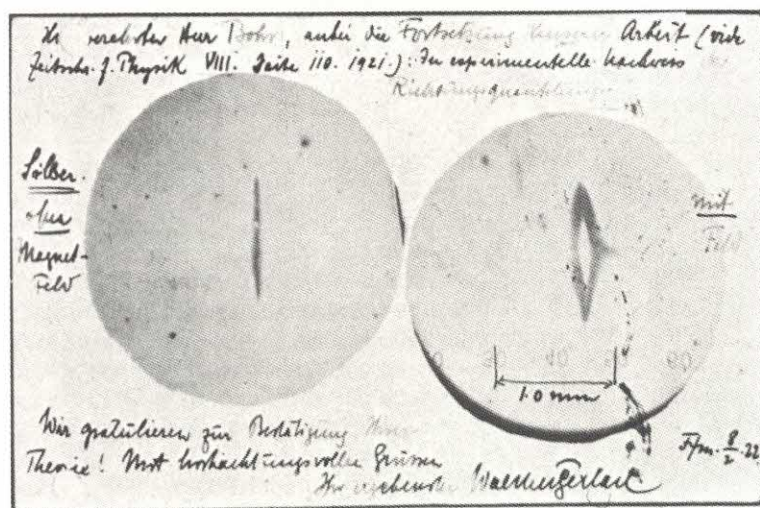 verehrter Herr Bohr, anbei die Fortsetzung unserer Arbeit (vide
Zeitschr. f. Physik VIII. Seite 110. 1921.): Der experimentelle Nachweis
Richtungsquantelung
Silber
ohne
Magnet-
Feld
mit
Feld
30 40 50 60
1.0 mm
Wir gratulieren zur Bestätigung Ihrer
Theorie! Mit hochachtungsvollen Grüssen
Ihr ergebenster Walther Gerlach
Ffm. 8/2. 22